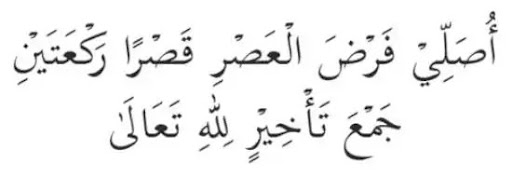 أُصَلِّيْ فَرْضَ الْعَصْرِ قَصْرًا رَكْعَتَيْنِ
جَمْعَ تَأْخِيْرٍ لِلّٰهِ تَعَالَىٰ